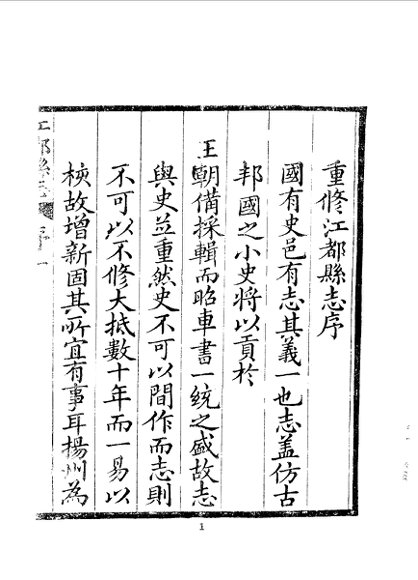 重修江都縣志序
國有史邑有志其義一也志盖仿古
邦國之小史將以貢於
王朝備採輯而昭車書一統之盛故志
與史並重然史不可以間作而志則
不可以不修大抵數十年而一易以
核故增新固其所宜有事耳揚州為
江都縣志
序
一
1